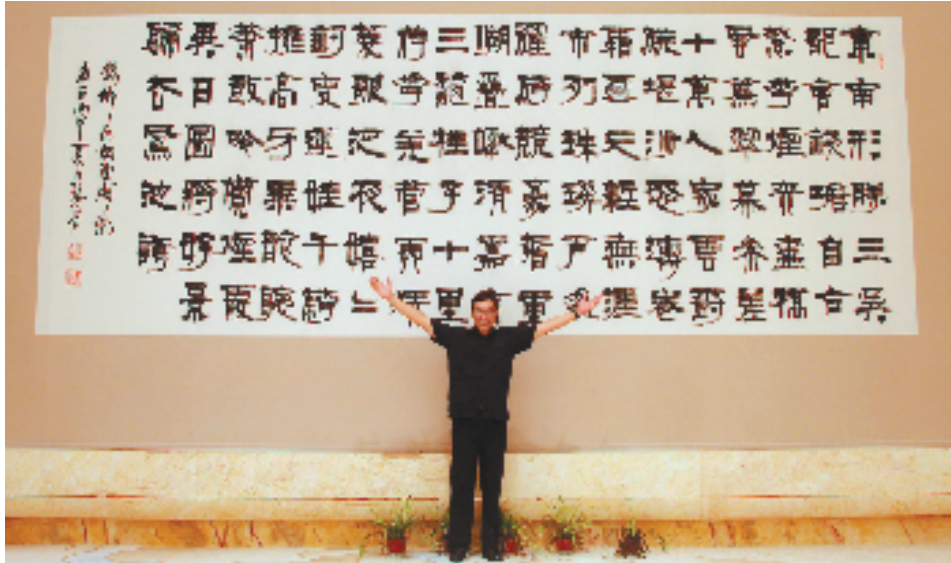 東南形勝三吳
都會錢塘自古
繁華煙柳畫橋
風簾翠幕參差
十萬人家雲樹
繞堤沙怒濤卷
霜雪天塹無涯
市列珠璣戶盈
羅綺競豪奢重
湖疊巘清嘉有
三秋桂子十里
荷花羌管弄晴
菱歌泛夜嬉嬉
釣叟蓮娃千騎
擁高牙乘醉聽
簫鼓吟賞煙霞
異日圖將好景
歸去鳳池誇